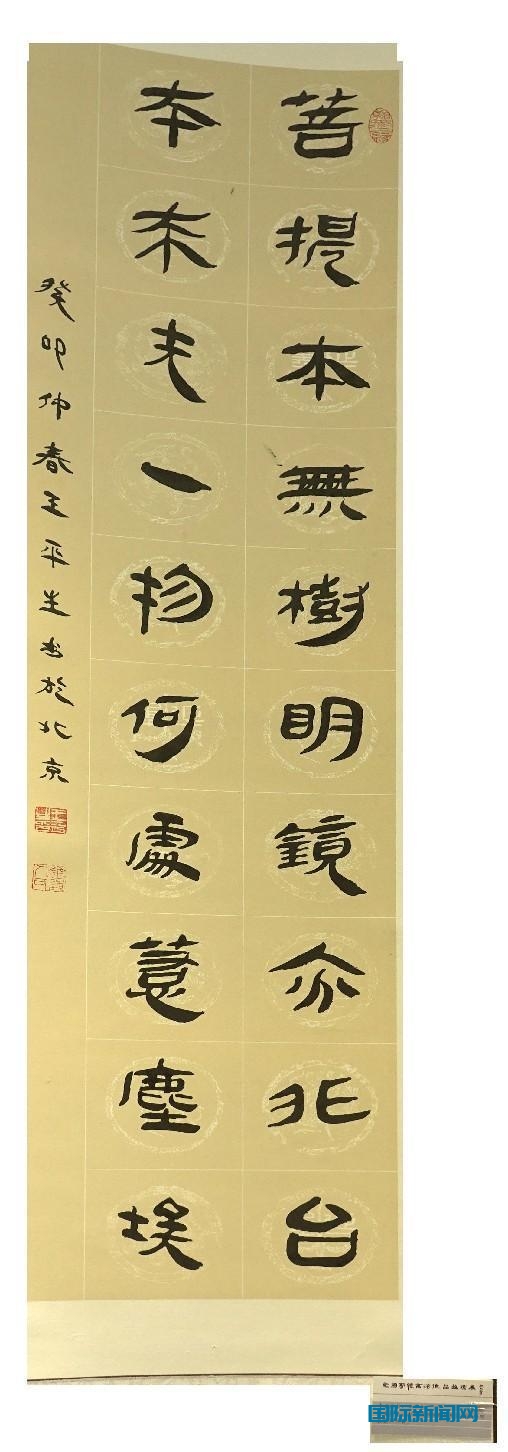 菩提本無樹明鏡亦非台
本来无一物何處惹塵埃
癸卯仲春王平生书於北京
国际新闻网